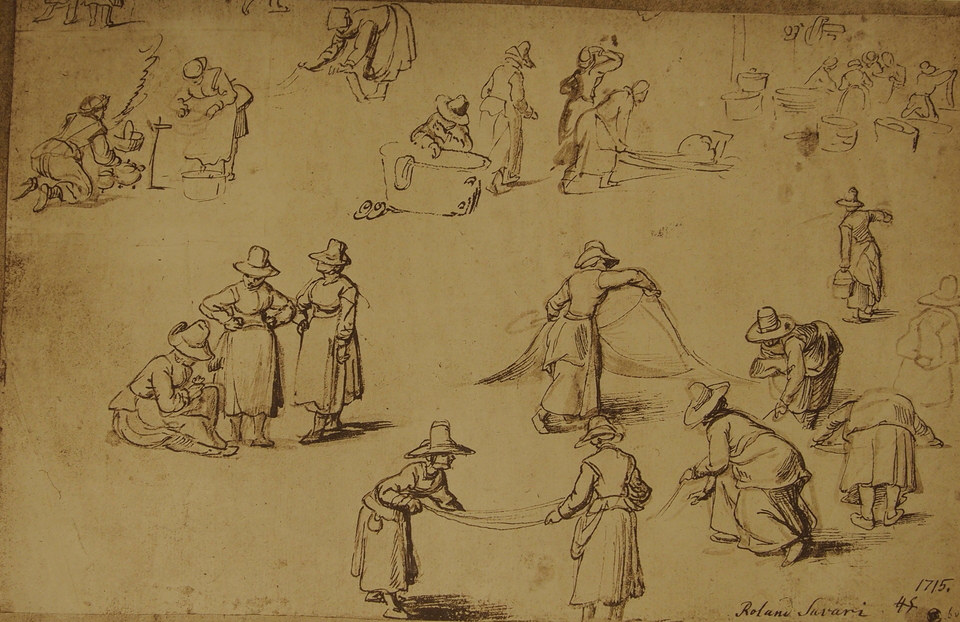 1715.
Roland Savari